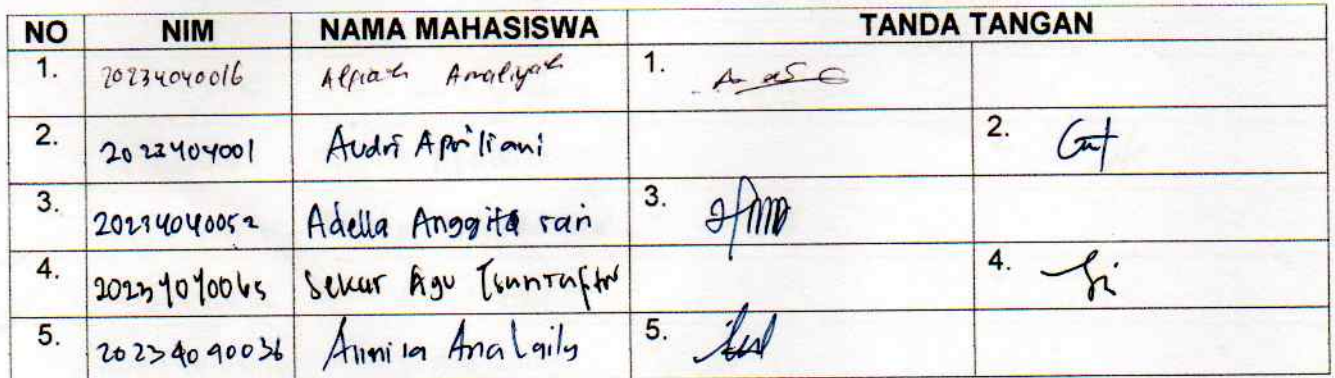 NO NIM NAMA MAHASISWA TANDA TANGAN
1. 20234040016 Alfiah Amaliyah 1.
2. 2023404001 Audri Apriliani 2.
3. 20234040052 Adella Anggita sari 3.
4. 20234040065 Sekar Agu 4.
5. 20234040036 Ana Laily 5.